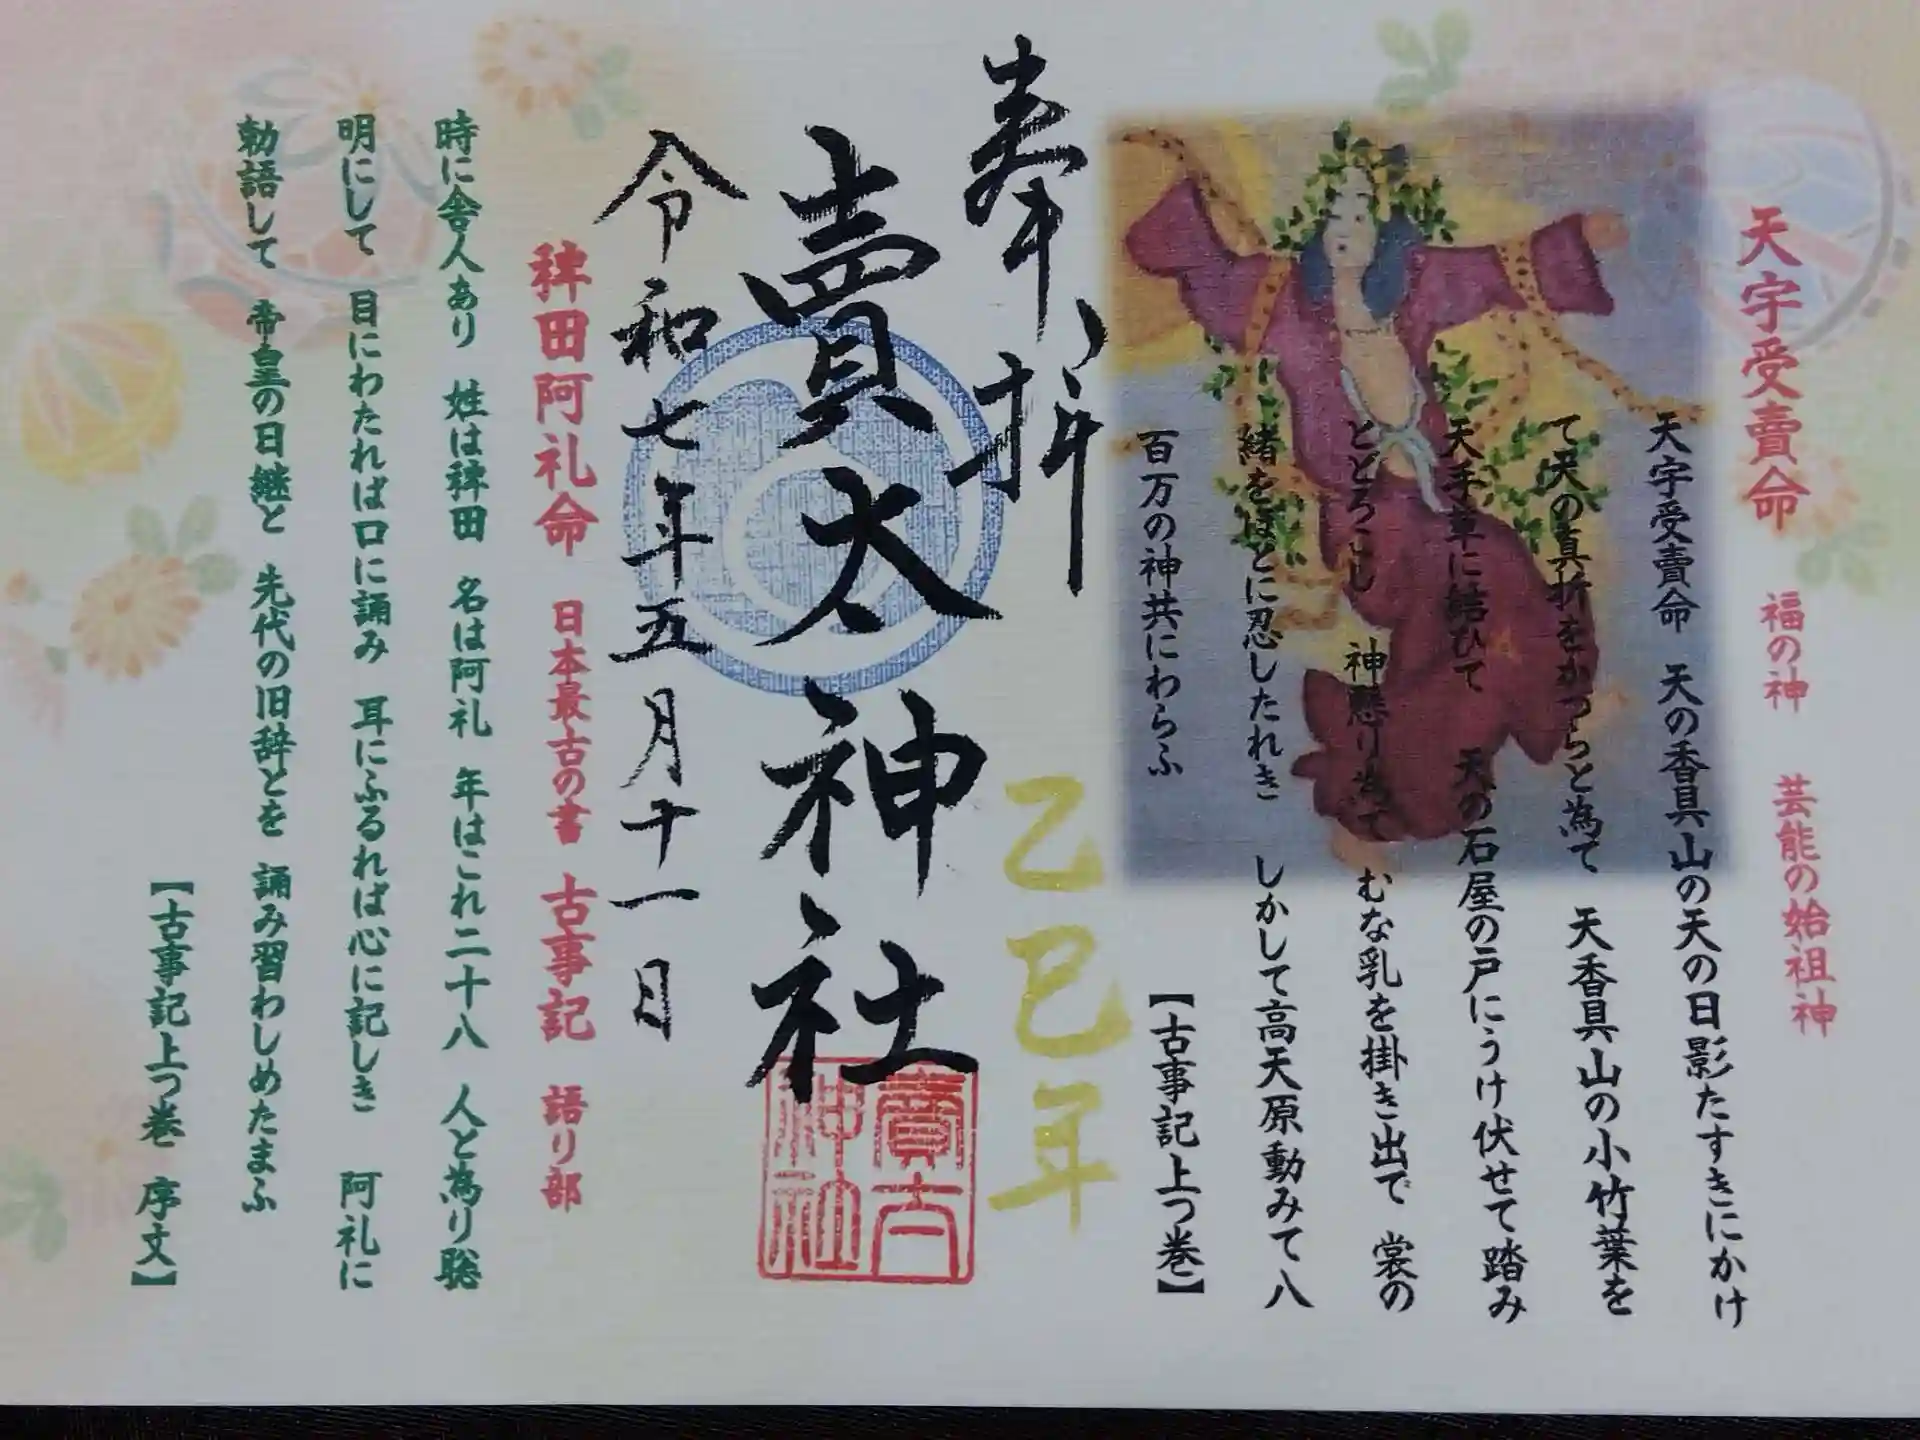 天宇受賣命 福の神 芸能の始祖神
天宇受賣命 天の香具山の天の日影たすきにかけ
て天の真折をかつらと為て 天香具山の小竹葉を
天手草に結ひて 天の石屋の戸にうけ伏せて踏み
とどろこし 神懸り為て むな乳を掛き出で 裳の
緒をほとに忍したれき しかして高天原動みて八
百万の神共にわらふ
【古事記上つ巻】
奉拝
乙巳年
賣太神社
賣太
神社
令和七年五月十一日
稗田阿礼命 日本最古の書 古事記 語り部
時に舎人あり 姓は稗田 名は阿礼 年はこれ二十八 人と為り聡
明にして 目にわたれば口に誦み 耳にふるれば心に記しき 阿礼に
勅語して 帝皇の日継と 先代の旧辞とを 誦み習わしめたまふ
【古事記上つ巻 序文】